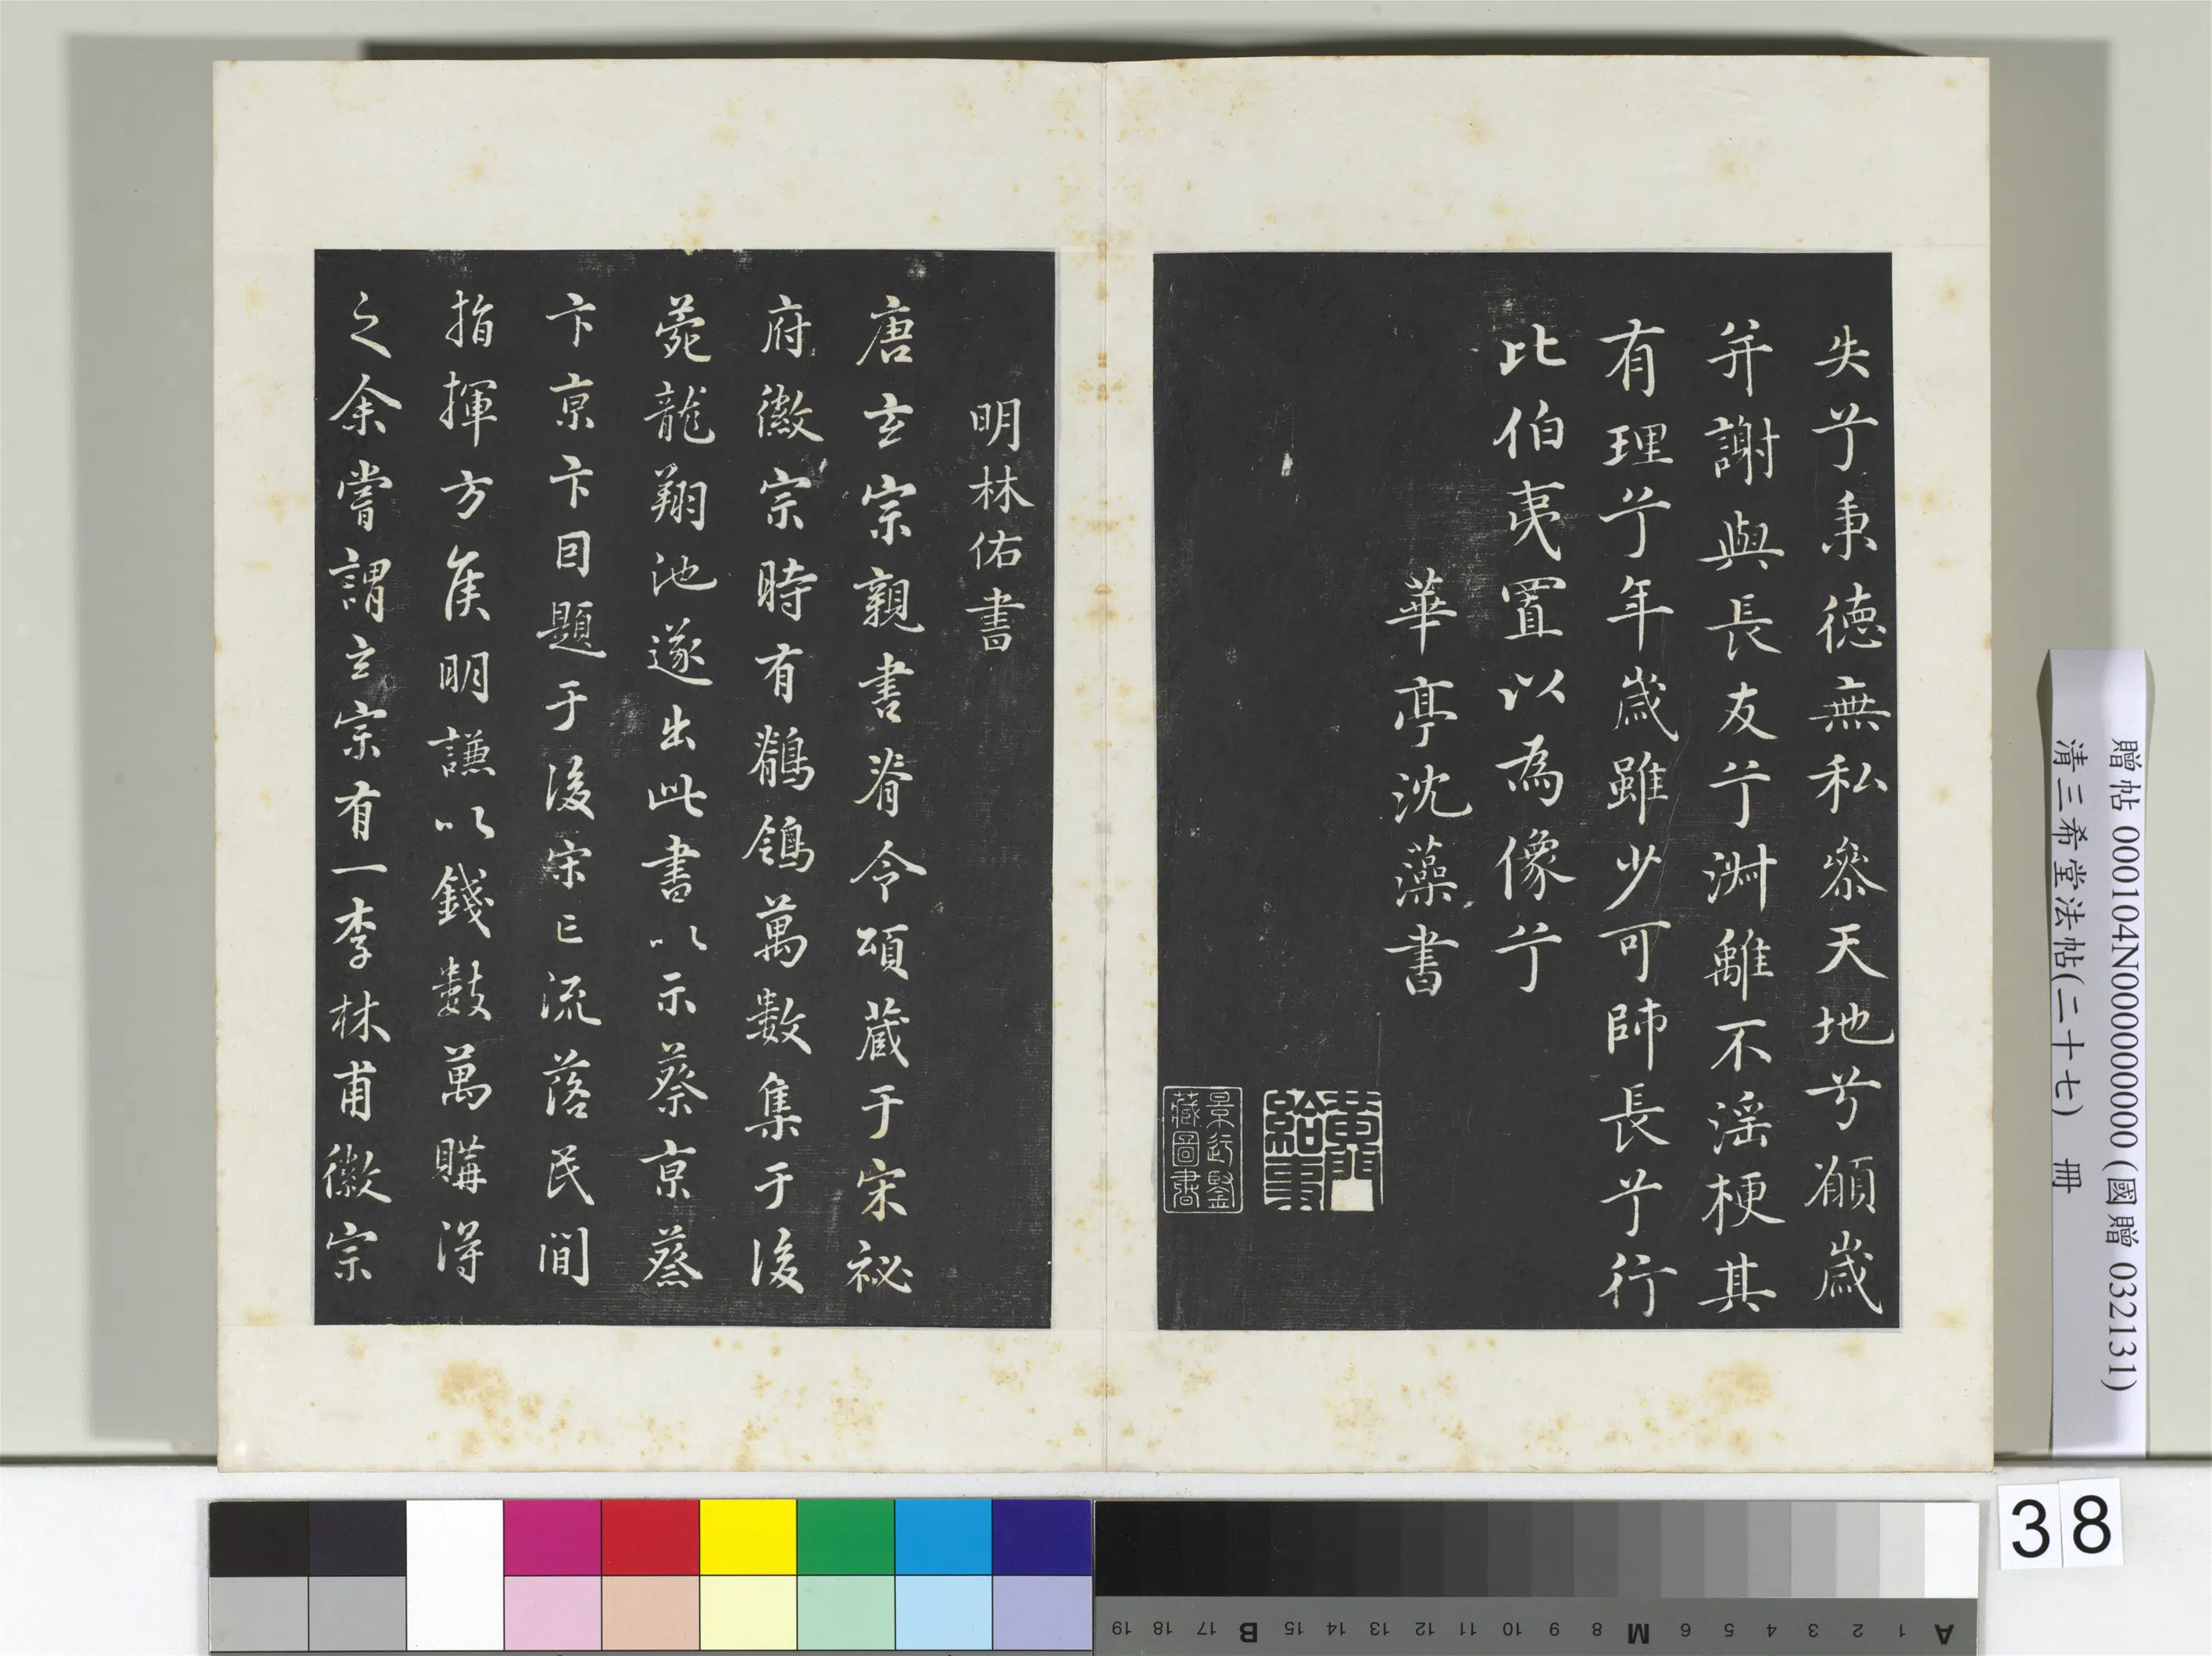 失兮秉德無私參天地兮願歲
并謝與長友兮淑離不淫梗其
有理兮年歲雖少可師長兮行
比伯夷置以為像兮
華亭沈藻書
黃門給事
景行鑒藏圖書
明林佑書
唐玄宗親書脊令頌蔵于宋祕
府徽宗時有鶺鴒萬數集于後
菀龍翔池遂出此書以示蔡京蔡
卞京卞因題于後宋亡流落民間
指揮方侯明謙以錢數萬購得
之余嘗謂玄宗有一李林甫徽宗
贈帖 000104N000000000 (國贈 032131)
清三希堂法帖(二十七) 冊
38
A 1 2 3 4 5 6 M 8 9 10 11 12 13 14 15 B 17 18 19